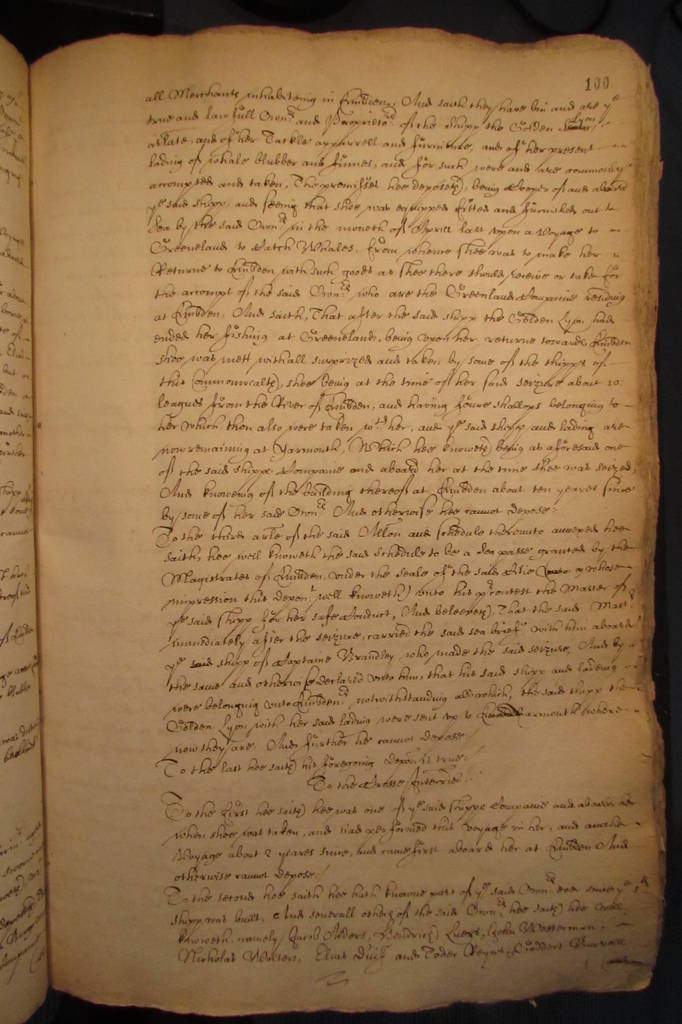 100
all Merchants inhabiteing in Embden, And saith they have bin and are ye
true and lawfull Ownrs and Proprietors of the shipp the Golden Lyon
arlate, and of her Tackle apparrell and furniture, and of her present
lading of whale blubber and finnes, and for such were and are commonly
accompted and taken, The premisses hee deposeth, being Cooper of and aboard
ye said shipp, and seeing that shee was equipped fitted and furnished out to
Sea by the said Ownrs in the moneth of Aprill last upon a voyage to
Greeneland to Catch Whales. from whence shee was to make her
Returne to Embden with such goods as shee there should receive or take for
the accompt of the said Ownrs who are the Greenland Companie residing
at Embden. And saith, That after the said shipp the Golden Lyon had
ended her fishing at Greeneland, being upon her returne towards Embden
shee was mett withall surprized and taken by some of the shipps of
this Commonwealth, shee being at the time of her said seizure about 10
leagues from the River of Embden, and having foure shallops belonging to
her which then also were taken with her, and ye said shipp and lading are
now remaining at Yarmouth, Which hee knoweth being as aforesaid one
of the said shipps Companie and aboard her at the time shee was seized,
And knoweing of the building thereof at Embden about ten yeares since
by some of her said Ownrs. And otherwise hee cannot depose:
To the third arle of the said Allon and schedule thereunto annexed hee
saith, hee well knoweth the said schedule to be a Sea passe, granted by the
Magistrates of Embden, under the seale of the said Citie whose
impression this deponent well knoweth) unto his precontest the Master of
ye said shipp for her safe Conduct, And beleeveth, That the said Master
immediately after the seizure, carried the said sea brief with him aboard
ye said shipp of Captaine Brandley who made the said seizure, And by
the same and otherwise declared unto him that his said shipp and lading
were belonging unto Embden, notwithstanding all which, the said shipp the
Golden Lyon with her said lading were sent up to Yarmouth where
now they are. And further he cannot depose
To the last hee saith his foregoing deposn is true.
To the Crosse Interries.
To the first hee saith hee was one of ye said shipps Companie and aboard her
when shee was taken, and had performed this voyage in her, and another
voyage about 2 yeares since, and came first aboard her at Embden And
otherwise cannot depose.
To the second hee saith hee hath knowne part of ye said Ownrs ever since ye sd
shipp was built, And severall others of the said Ownrs hee saith hee well
knoweth, namely, Jacob Alders, Hendrick Luers, John Wetterman,
Nicholas Wolters, and